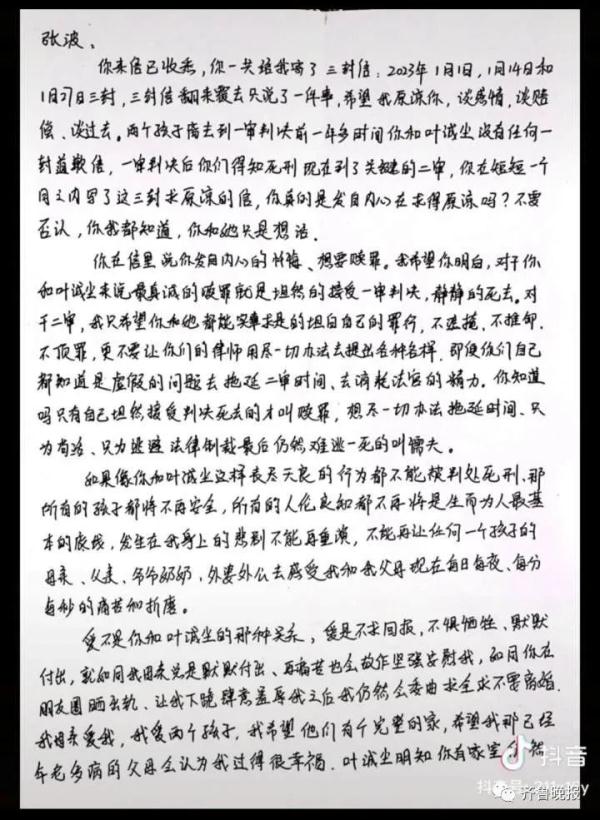 张波、
你来信已收悉，你一共给我寄了三封信：2023年1月1日，1月14日和
1月27日三封，三封信翻来覆去只说了一件事，希望我原谅你，谈感情，谈赔
偿、谈过去。两个孩子离去到一审判决前一年多时间你和叶诚尘没有任何一
封道歉信，一审判决后你们得知死刑现在到了关键的二审，你在短短一个
月之内写了这三封求原谅的信，你真的是发自内心在求得原谅吗？不要
否认，你我都知道，你和她只是想活．
你在信里说你发自内心的忏悔、想要赎罪。我希望你明白，对于你
和叶诚尘来说最真诚的赎罪就是坦然的接受一审判决，静静的死去。对
于二审，我只希望你和她都能实事求是的坦白自己的罪行，不遮掩、不推卸．
不顶罪，更不要让你们的律师用尽一切办法去提出各种各样．即便你们自己
都知道是虚假的问题去拖延二审时间、去消耗法官的精力。你知道
吗只有自己坦然接受判决死去的才叫赎罪，想尽一切办法拖延时间、只
为苟活、只为逃避法律制裁最后仍然难逃一死的叫懦夫。
如果像你和叶诚尘这样丧尽天良的行为都不能被判处死刑，那
所有的孩子都将不再安全，所有的人伦良知都不再将是生而为人最基
本的底线，发生在我身上的悲剧不能再重演，不能再让任何一个孩子的
母亲、父亲、爷爷奶奶，外婆外公去感受我和我父母现在每日每夜、每分
每秒的痛苦和折磨。
爱不是你和叶诚尘的那种关系，爱是不求回报，不惧牺牲、默默
付出，就如同我母亲总是默默付出、再痛苦也会故作坚强安慰我，如同你在
朋友圈晒出轨、让我下跪肆意羞辱我之后我仍然会委曲求全求不要离婚．
我母亲爱我，我爱两个孩子，我希望他们有个完整的家，希望我那已经
年老多病的父母会认为我过得很幸福．叶诚尘明知你有家室
抖音
抖音号：
齐鲁晚报